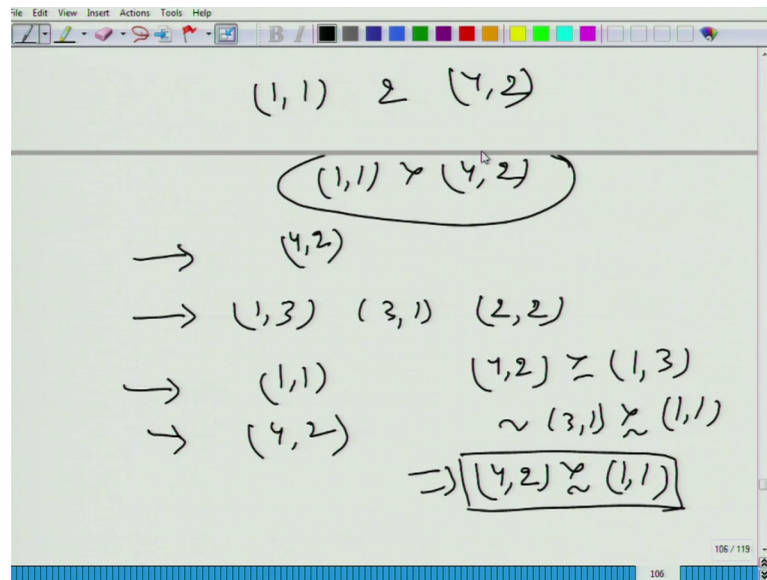 File Edit View Insert Actions Tools Help
B I
(1,1) & (4,2)
(1,1) ≻ (4,2)
→ (4,2)
→ (1,3) (3,1) (2,2)
→ (1,1) (4,2) ≿ (1,3)
→ (4,2) ~ (3,1) ≿ (1,1)
⇒ (4,2) ≿ (1,1)
106 / 119
106